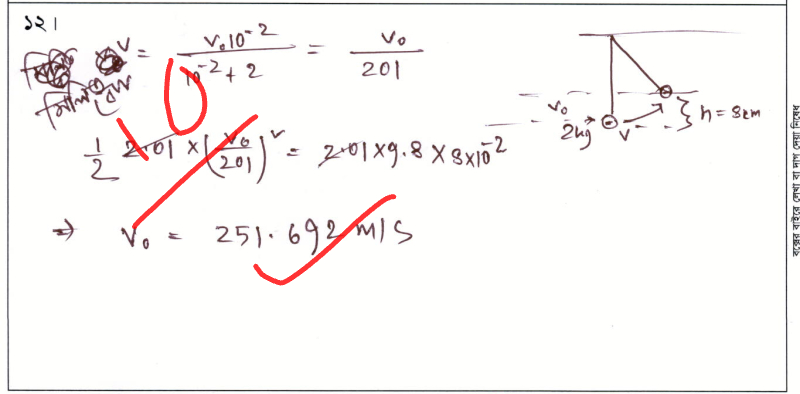 ১২।
V = V₀10⁻² / 10⁻² + 2 = V₀ / 201
মিলিত বেগ
1/2 2.01 × (V₀/201)² = 2.01 × 9.8 × 8×10⁻²
⇒ V₀ = 251.692 m/s
10
V₀
2kg
V
h = 8cm
বক্সের বাইরে লেখা বা দাগ দেয়া নিষেধ